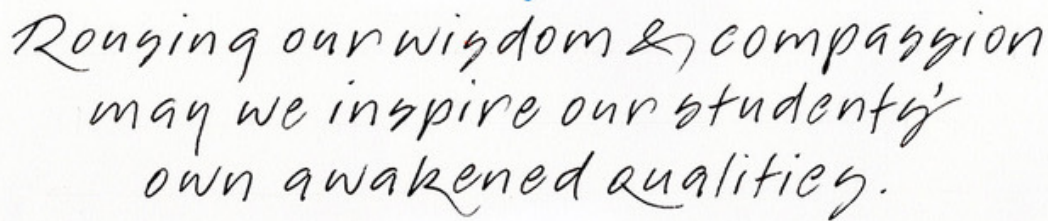 Rousing our wisdom & compassion
may we inspire our students'
own awakened qualities.